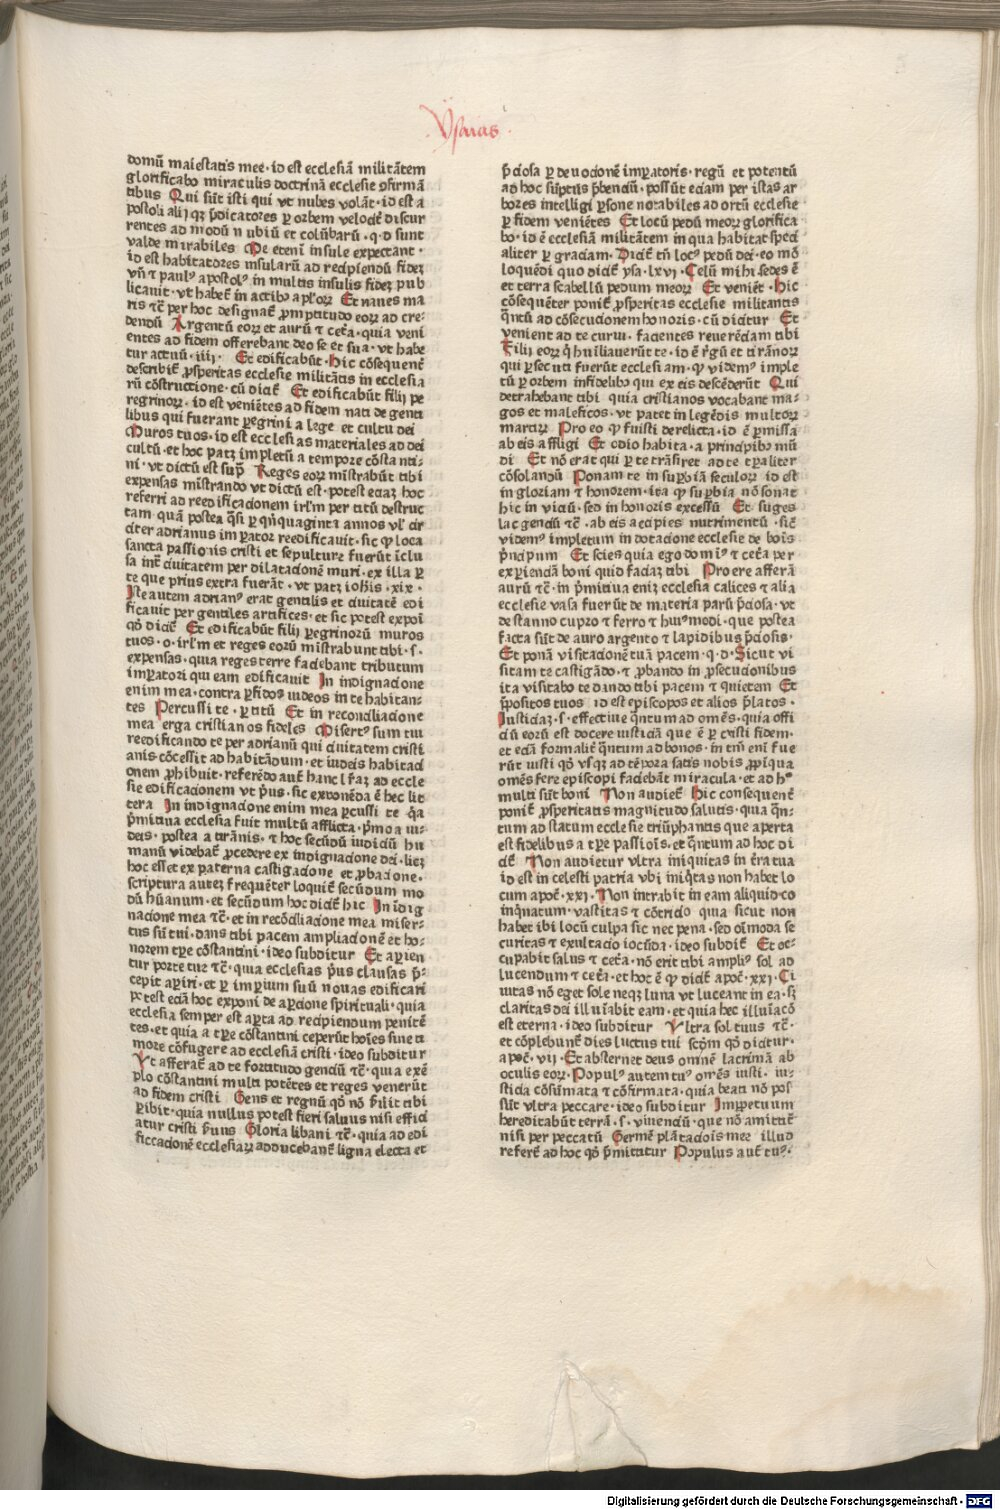 Ysaias
domū maiestatis mee · id est ecclesiā militātem
glorificabo miraculis doctrinā ecclesie ꝯfirmā
tibus Qui sūt isti qui vt nubes volāt · id est a
postoli alij qꝫ p̄dicatores ꝑ orbem velocit̄ discur
rentes ad modū nubiū et colūbarū · q · d sunt
valde mirabiles Me eteni insule expectant ·
id est habitatores insularū ad recipiendū fidez
vn̄ ⁊ paulꝰ apostolꝰ in multis insulis fidez pub
licauit · vt habet̄ in actibꝰ apl'oꝝ Et naues ma
ris ⁊c̄ per hoc designat̄ ꝓmptitudo eoꝝ ad cre-
dendū Argentū eoꝝ et aurū ⁊ cet̄a · quia veni
entes ad fidem offerebant deo se et sua · vt habe
tur actuū · iiij · Et edificabūt · Hic cōsequent̄
describit̄ ꝓsperitas ecclesie militātis in ecclesia
rū cōstructione · cū dicit̄ Et edificabūt filij pe
regrinoꝝ · id est veniētes ad fidem nati de genti
libus qui fuerant ꝑegrini a lege et cultu dei
Muros tuos · id est ecclesias materiales ad dei
cultū · et hoc patꝫ impletū a tempore cōstanti-
ni · vt dictū est sup̄ Reges eoꝝ mīstrabūt tibi
expensas mīstrando vt dictū est · potest eciaꝫ hoc
referri ad reedificacionem irl'm per titū destruc
tam · quā postea q̄si ꝑ qn̄quaginta annos vl' cir
citer adrianus imꝑator reedificauit · sic ꝙ loca
sancta passionis cristi et sepulture fuerūt iclu
sa int̄ ciuitatem per dilatacionē muri · ex illa ꝑ
te que prius extra fuerāt · vt patꝫ ioh̄is · xix ·
Iste autem adrianꝰ erat gentilis et ciuitatē edi
ficauit per gentiles artifices · et sic potest expoi
qd̄ dicit̄ Et edificabūt filij ꝑegrinorū muros
tuos · o · irl'm et reges eorū mīstrabunt tibi · s ·
expensas · quia reges terre faciebant tributum
imꝑatori qui eam edificauit In indignacione
enim mea · contra ꝑfidos iudeos in te habitan-
tes Percussi te · ꝑ titū Et in reconciliacione
mea erga cristianos fideles Misertꝰ sum tui
reedificando te per adrianū qui ciuitatem cristi
anis cōcessit ad habitādum · et iudeis habitaci
onem ꝓhibuit · referēdo aut̄ hanc l'raꝫ ad eccle
sie edificacionem vt p̄us · sic exponēda ē hec lit
tera In indignacione enim mea ꝑcussi te q̄a
p̄mitiua ecclesia fuit multū afflicta · p̄mo a iu-
deis · postea a tirānis · ⁊ hoc secūdū iudiciū hu
manū videbat̄ ꝓcedere ex indignacione dei · licꝫ
hoc esset ex paterna castigacione et ꝓbacione ·
scriptura auteꝫ frequēter loquit̄ secūdum mo
dū hūanum · et secūdum hoc dicit̄ hic In īdig
nacione mea ⁊c̄ · et in recōciliacione mea miser-
tus sū tui · dans tibi pacem ampliacionē et ho-
norem tꝑe cōstantini · ideo subditur Et aꝑien
tur porte tue ⁊c̄ · quia ecclesias p̄us clausas p̄-
cepit aꝑiri · et ꝑ imꝑium suū nouas edificari
potest eciā hoc exponi de aꝑcione spirituali · quia
ecclesia semper est aꝑta ad recipiendum penitē
tes · et quia a tꝑe cōstantini ceperūt hoies sine ti
more cōfugere ad ecclesiā cristi · ideo subditur
Vt afferat̄ ad te fortitudo genciū ⁊c̄ · quia exē
plo cōstantini multi potētes et reges venerūt
ad fidem cristi Gens et regnū qd̄ nō s̄uiit tibi
ꝑibit · quia nullus potest fieri saluus nisi effici
atur cristi s̄uus Gloria libani ⁊c̄ · quia ad edi
ficcacionē ecclesiaꝝ adducebant̄ ligna electa et
p̄ciosa ꝑ deuocionē imꝑatoris · regū et potentū
ad hoc sūptus p̄benciū · possūt eciam per istas ar
bores intelligi ꝑsone notabiles ad ortū ecclesie
ꝑ fidem veniētes Et locū pedū meoꝝ glorifica
bo · id ē ecclesiā militātem in qua habitat speci
aliter ꝑ graciam · Dicit̄ tn̄ locꝰ pedū dei · eo mō
loquēdi quo dicit̄ ysa · lxvj · Celū mihi sedes ē
et terra scabellū pedum meoꝝ Et veniēt · Hic
cōsequēter ponit̄ ꝓsperitas ecclesie militantis
q̄ntū ad cōsecucionem honoris · cū dicitur Et
venient ad te curui · facientes reuerēciam tibi
Filij eoꝝ q̄ hūiliauerūt te · id ē r̄gū et tirānoꝝ
qui ꝑsecuti fuerūt ecclesiam · ꝙ videmꝰ imple
tū ꝑ orbem infidelibꝰ qui ex eis descēderūt Qui
detrahebant tibi quia cristianos vocabant ma-
gos et maleficos · vt patet in legēdis multoꝝ
martiꝝ Pro eo ꝙ fuisti derelicta · id ē ꝑmissa
ab eis affligi Et odio habita · a principibꝰ mū
di Et nō erat qui ꝑ te trāsiret ad te tꝑaliter
cōsolandū Ponam te in suꝑbiā seculoꝝ id est
in gloriam ⁊ honorem · ita ꝙ suꝑbia nō sonat
hic in viciū · sed in honoris excessū Et suges
lac genciū ⁊c̄ · ab eis accipies nutrimentū · sic̄
videmꝰ impletum in dotacione ecclesie de bois
p̄ncipum Et scies quia ego domiꝰ ⁊ cet̄a per
exꝑienciā boni quid faciaꝫ tibi Pro ere afferā
aurū ⁊c̄ · in p̄mitiua eniꝫ ecclesia calices ⁊ alia
ecclesie vasa fuerūt de materia parū p̄ciosa · vt
de stanno cupro ⁊ ferro ⁊ huiꝰmodi · que postea
facta sūt de auro argento ⁊ lapidibus p̄ciosis ·
Et ponā visitacionē tuā pacem · q · d · Sicut vi
sitam te castigādo · ⁊ ꝓbando in ꝑsecucionibus
ita visitabo te dando tibi pacem ⁊ quietem Et
p̄positos tuos id est episcopos et alios p̄latos ·
Iusticiaꝫ · s · effectiue q̄ntum ad omēs · quia offi
ciū eorū est docere iusticiā que ē ꝑ cristi fidem ·
et eciā formalit̄ q̄ntum ad bonos · in tm̄ enī fue
rūt iusti qd̄ vsqꝫ ad tēpora satis nobis ꝓpīqua
omēs fere episcopi faciebāt miracula · et ad hᵒ
multi sūt boni Non audiet̄ Hic consequent̄
ponit̄ ꝓsperitatis magnitudo salutis · quia q̄n-
tum ad statum ecclesie triūphantis que aperta
est fidelibus a tꝑe passiois · et q̄ntum ad hoc di
cit̄ Non audietur vltra iniquitas in t̄ra tua
id est in celesti patria vbi iniq̄tas non habet lo
cum apoc̄ · xxj · Non intrabit in eam aliquid co
inq̄natum · vastitas ⁊ cōtricio quia sicut non
habet ibi locū culpa sic nec pena · sed oimoda se
curitas ⁊ exultacio iocūda · ideo subdit̄ Et oc-
cupabit salus ⁊ cet̄a · nō erit tibi ampliꝰ sol ad
lucendum ⁊ cet̄a · et hoc ē ꝙ dicit̄ apoc̄ · xxj · Ci
uitas nō eget sole neqꝫ luna vt luceant in ea · sꝫ
claritas dei illuīabit eam · et quia hec illuīacō
est eterna · ideo subditur Vltra sol tuus ⁊c̄ ·
et cōplebunt̄ dies luctus tui scd̄m qd̄ dicitur ·
apoc̄ · vij · Et absterget deus omnē lacrimā ab
oculis eoꝝ · Populꝰ autem tuꝰ omēs iusti · iu-
sticia cōsūmata ⁊ cōfirmata · quia beati nō pos
sūt vltra peccare · ideo subditur Imꝑpetuum
hereditabūt terrā · s · viuenciū · que nō amittit̄
nisi per peccatū Germē plātaciois mee illud
refert̄ ad hoc qd̄ p̄mittitur Populus aut̄ tuꝰ ·
Digitalisierung gefördert durch die Deutsche Forschungsgemeinschaft - DFG